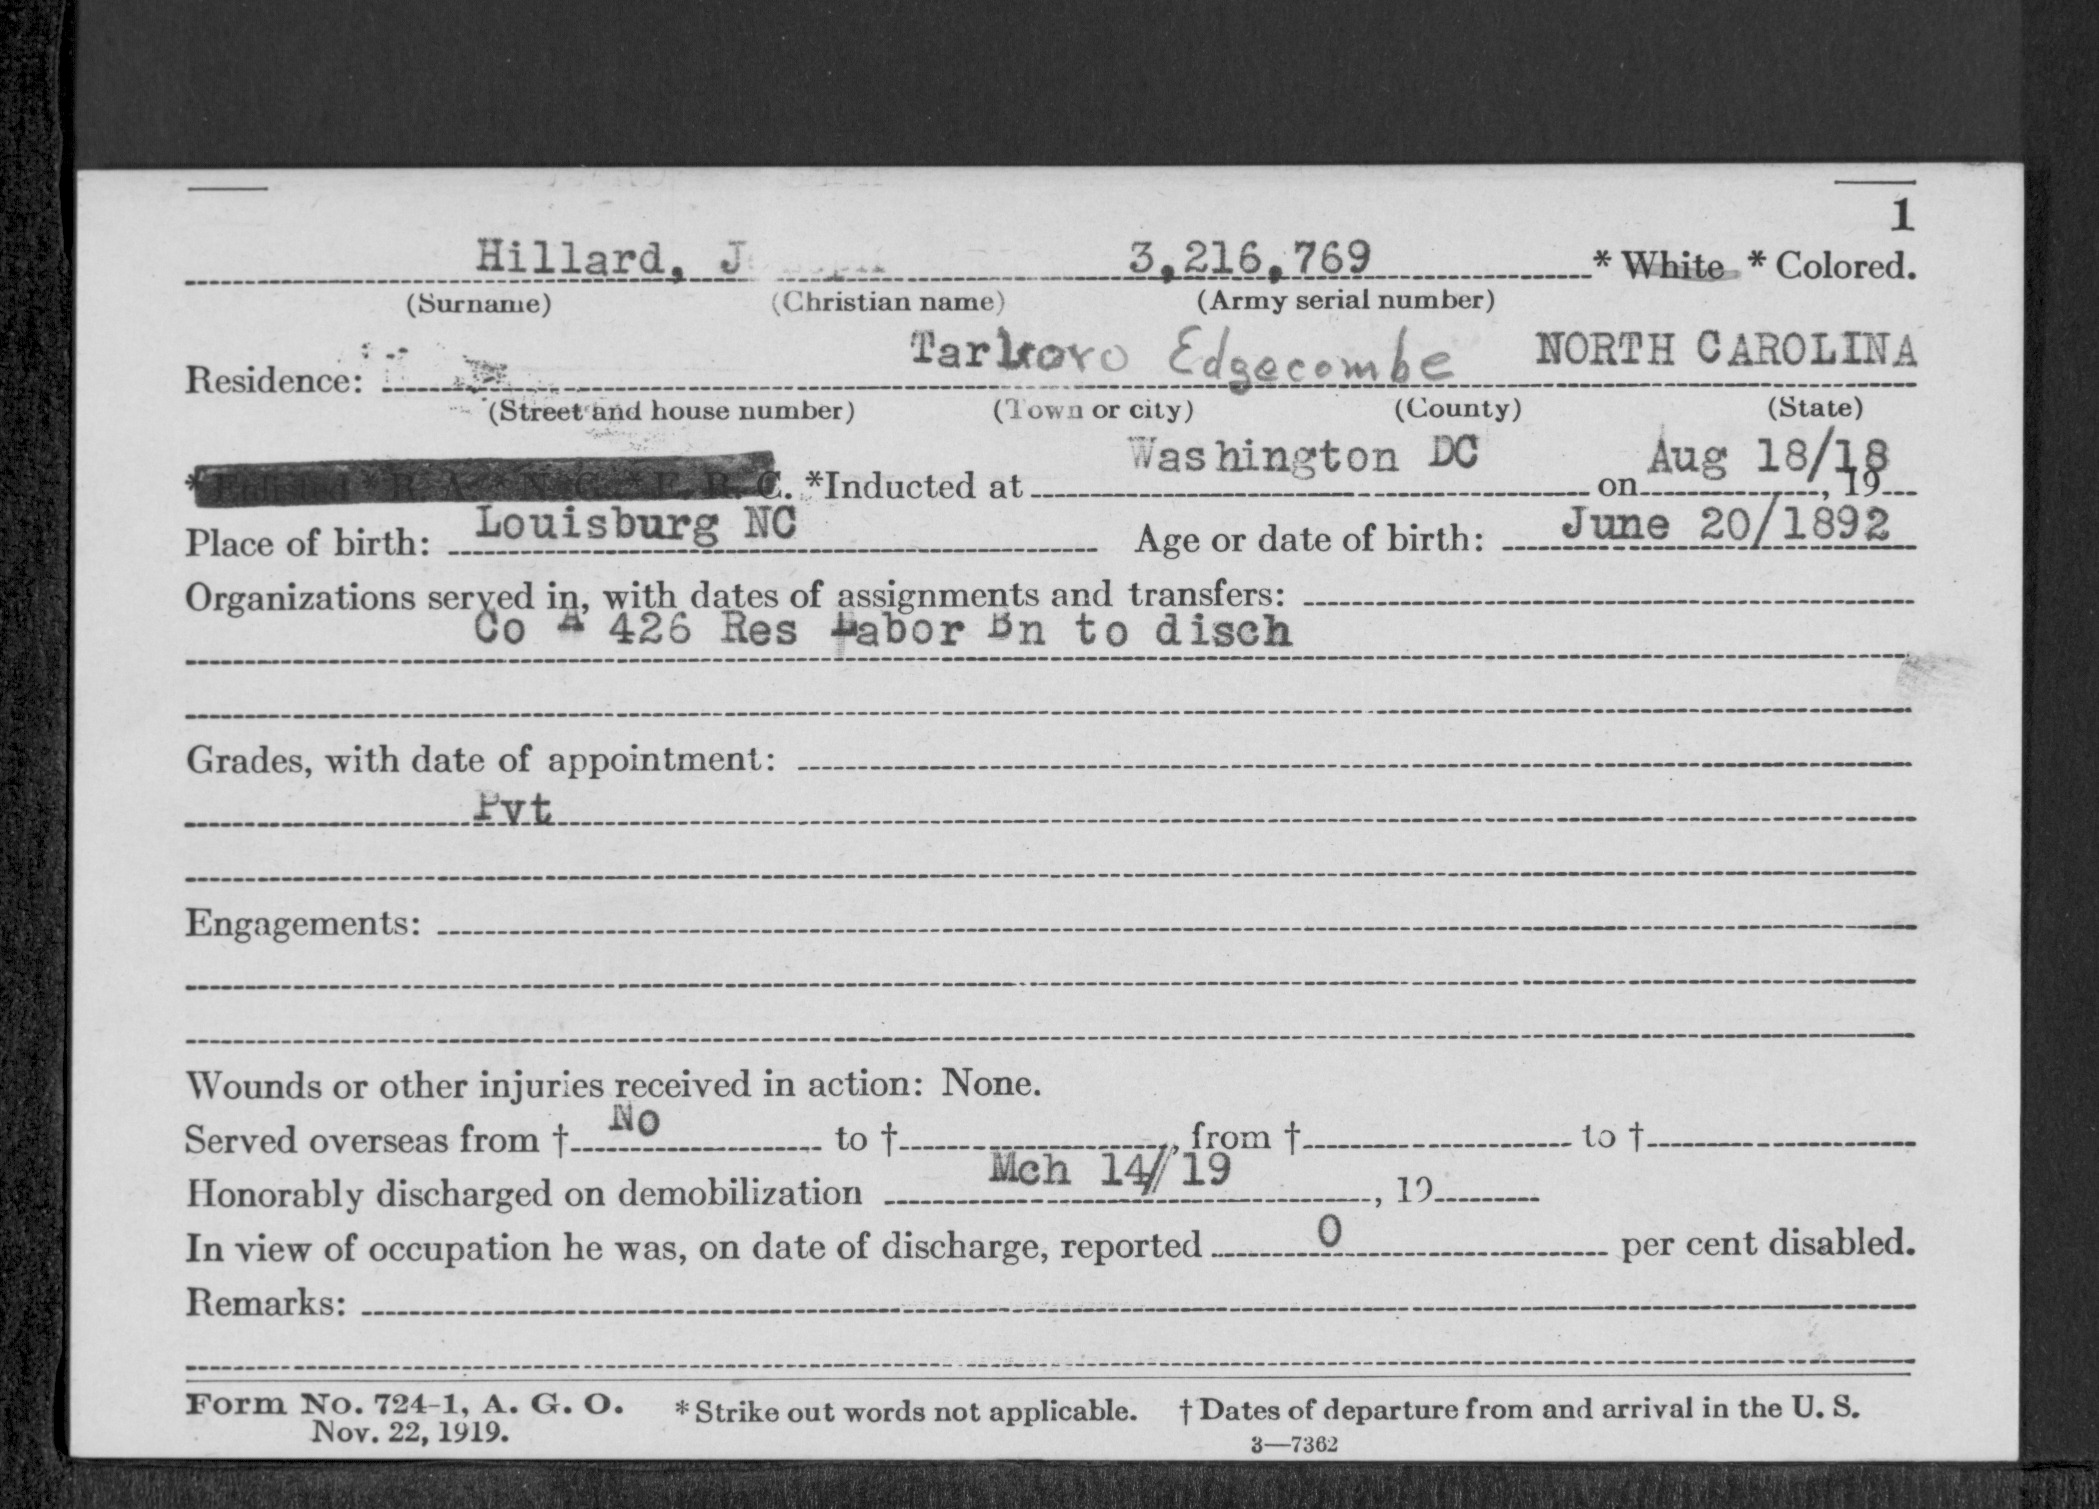 1
Hillard, J 3,216,769 * White * Colored.
(Surname) (Christian name) (Army serial number)
Residence: Tarboro Edgecombe NORTH CAROLINA
(Street and house number) (Town or city) (County) (State)
* Enlisted * R. A. * N. G. * E. R. C. *Inducted at Washington DC on Aug 18/18, 19
Place of birth: Louisburg NC Age or date of birth: June 20/1892
Organizations served in, with dates of assignments and transfers:
Co A 426 Res Labor Bn to disch
Grades, with date of appointment:
Pvt
Engagements:
Wounds or other injuries received in action: None.
Served overseas from † No to † , from † to †
Honorably discharged on demobilization Mch 14/19, 19
In view of occupation he was, on date of discharge, reported 0 per cent disabled.
Remarks:
Form No. 724-1, A. G. O. * Strike out words not applicable. † Dates of departure from and arrival in the U. S.
Nov. 22, 1919.
3—7362